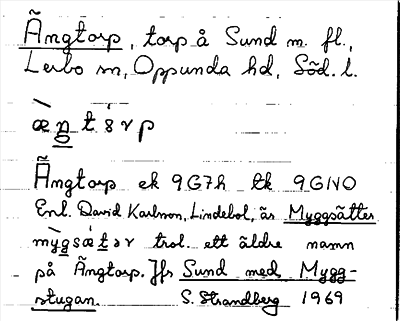 Ängtorp, torp å Sund m. fl.,
Lerbo sn, Oppunda hd, Söd. l.
æ̀ŋtɜrp
Ängtorp ek 9G7h tk 9G1V0
Enl. David Karlsson, Lindebol, är Myggsätter
mỳgsætər trol. ett äldre namn
på Ängtorp. Jfr Sund med Mygg-
stugan. S. Strandberg 1969